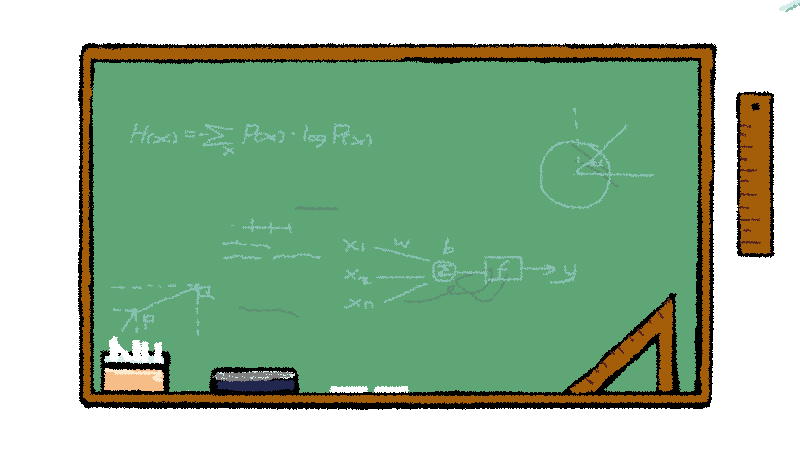 H(x) = -∑ P(x) · log P(x)
x
x₁ w b
x₂ Σ f y
xₙ
α
P